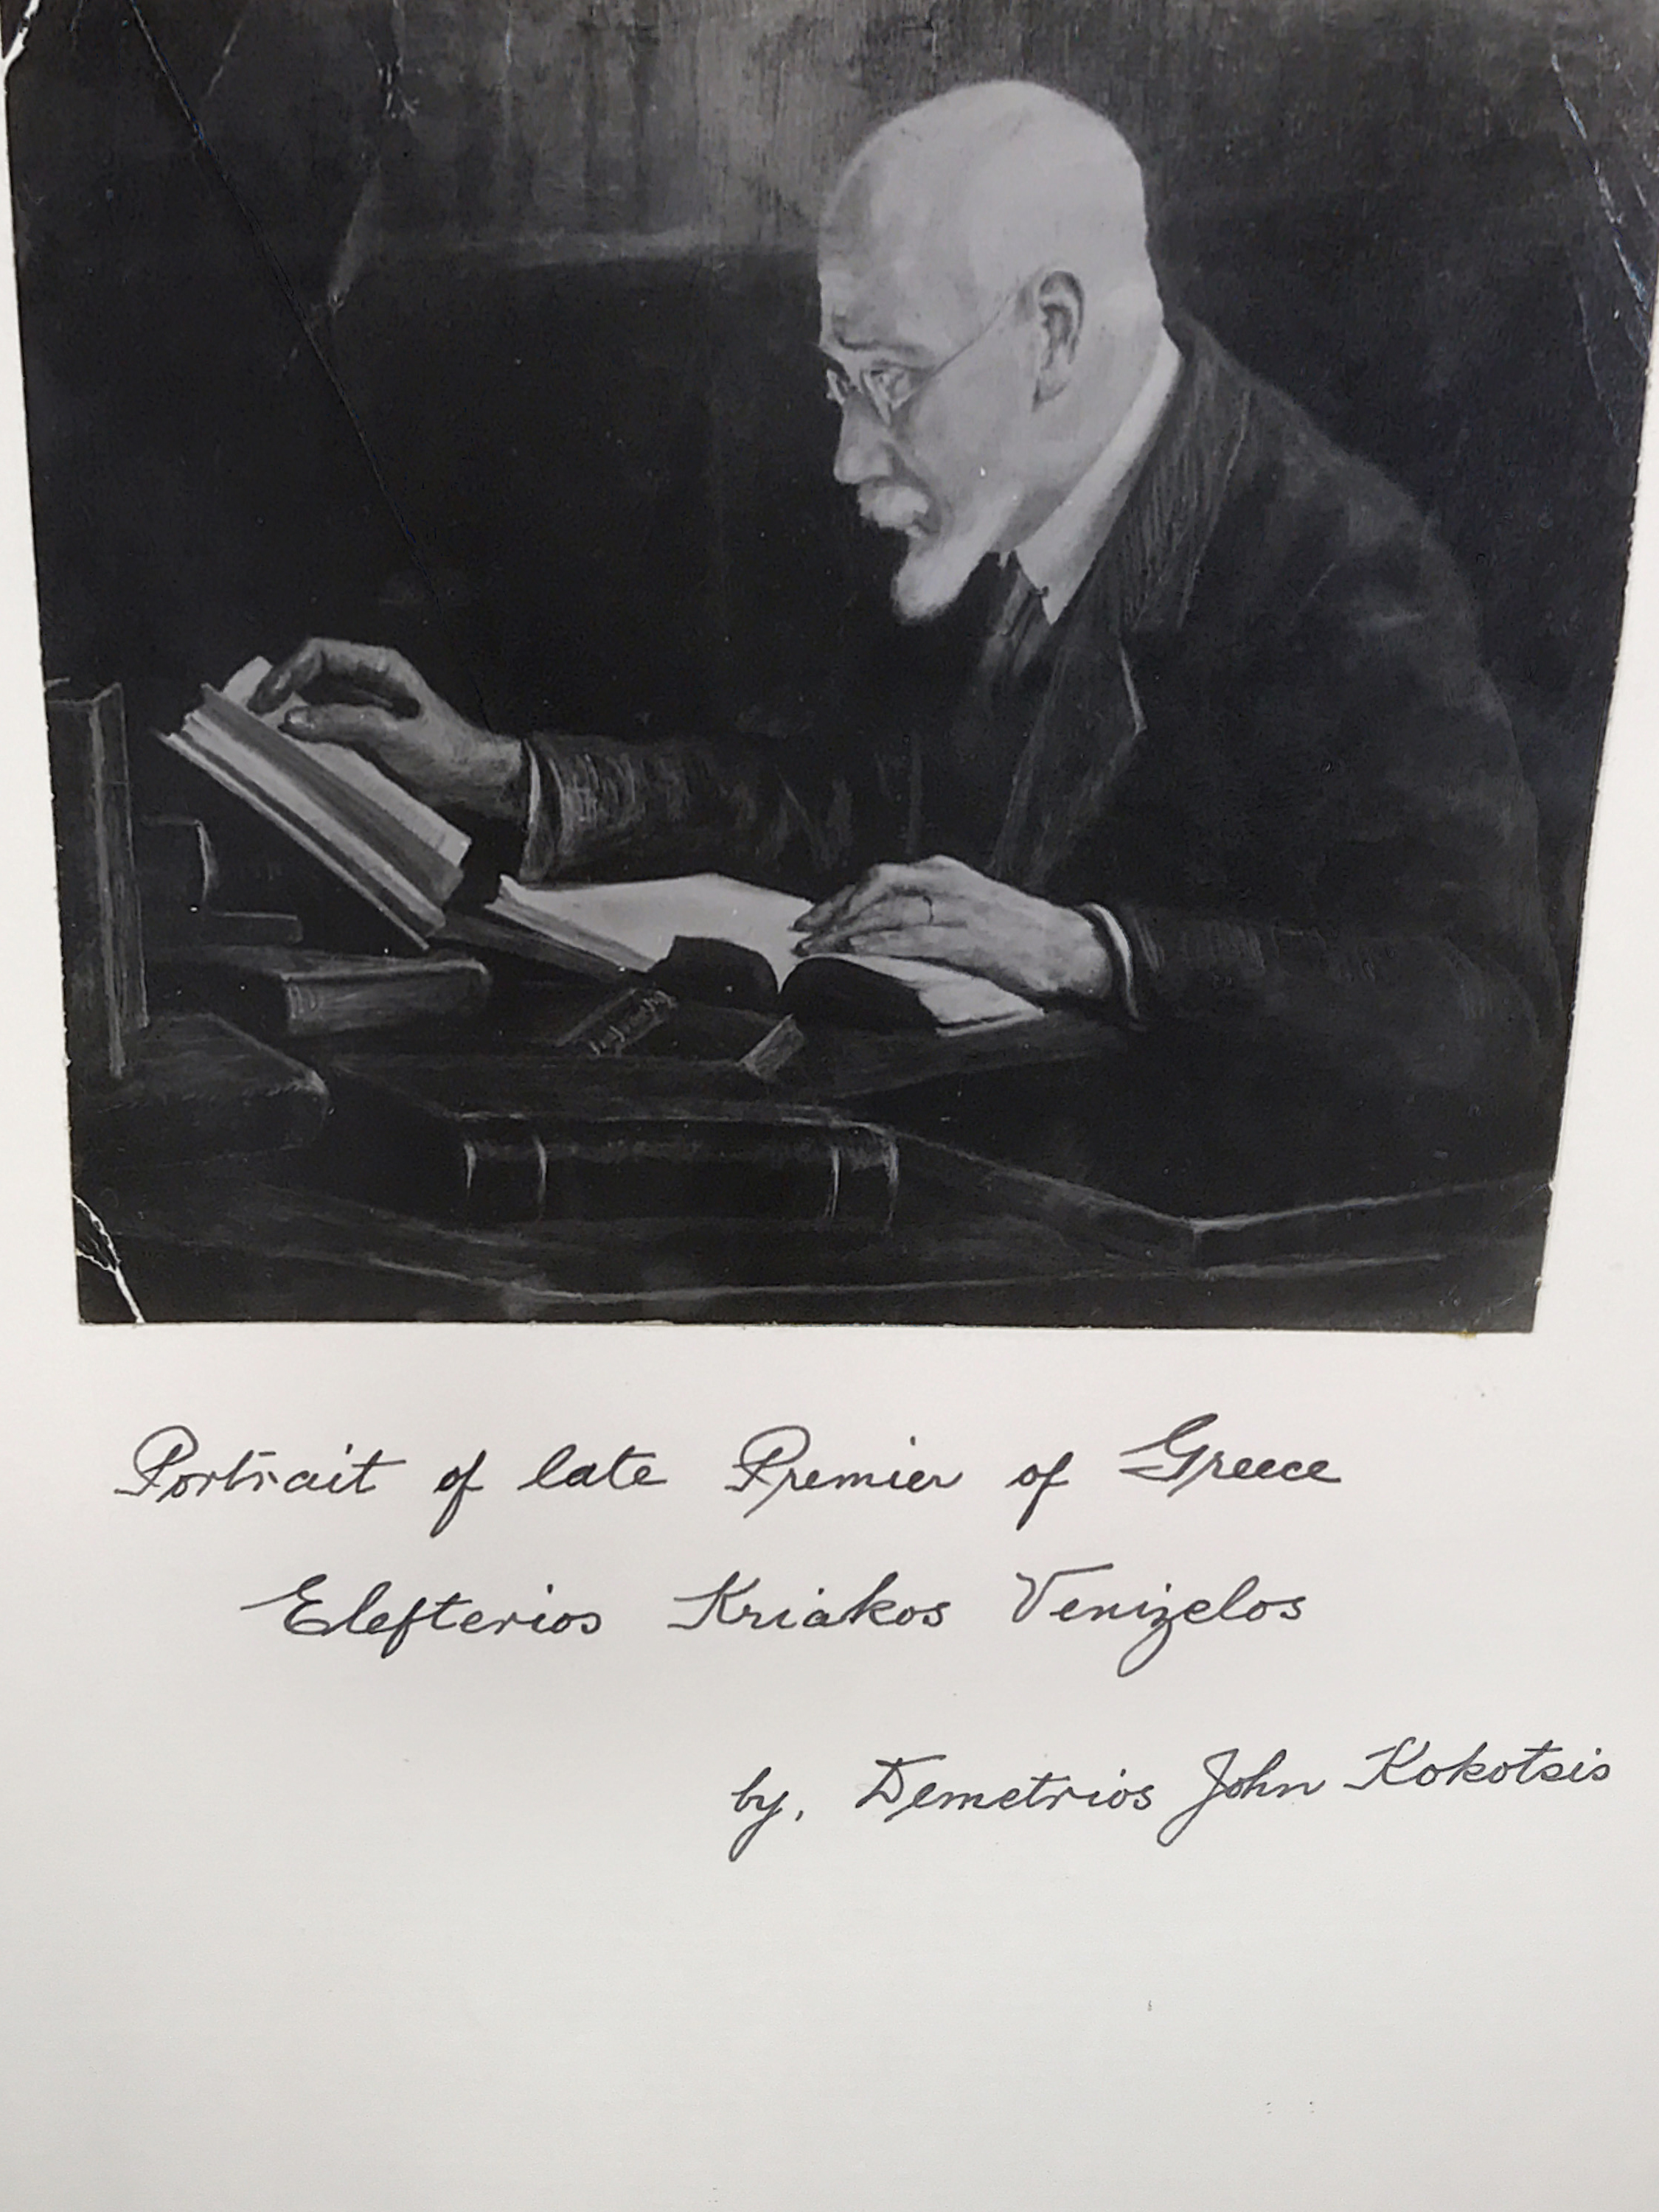 Portrait of late Premier of Greece
Elefterios Kriakos Venizelos
by, Demetrios John Kokotsis